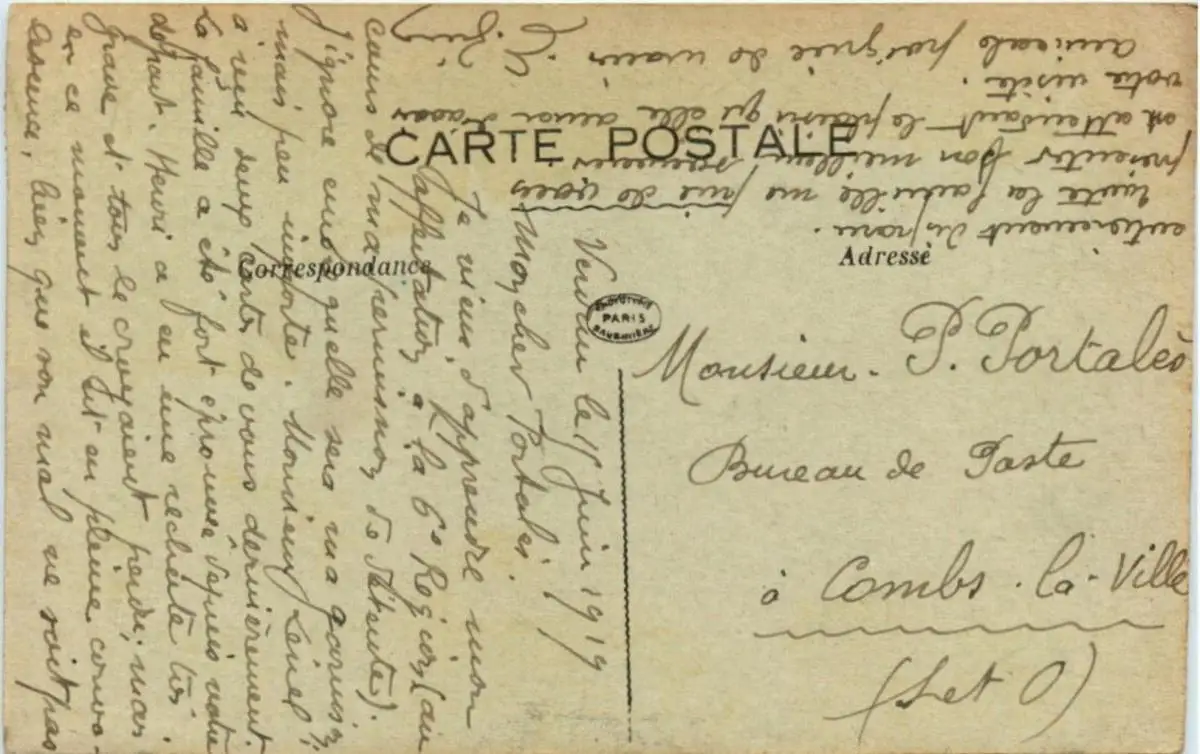 CARTE POSTALE
Correspondance
Adresse
PARIS
Monsieur P. Portalès
Bureau de Poste
à Combs-la-Ville
(S et O)
Verdun le 15 Juin 1919
Mon cher Portalès.
Je viens d'apprendre mon
affectation à la 6e Région (au
cours de ma permission de détente).
J'ignore encore quelle sera ma garnison,
mais peu importe. Monsieur
a reçu deux cartes de vous dernièrement.
La famille a été fort éprouvée depuis votre
départ. Henri a eu une rechute très
grave et tous le croyaient perdu, mais
en ce moment il est en pleine conva-
lescence, bien que son mal ne soit pas
entièrement disparu.
Toute la famille me prie de vous
présenter son meilleur souvenir
en attendant le plaisir qu'elle aura d'avoir
votre visite.
Amicale poignée de mains